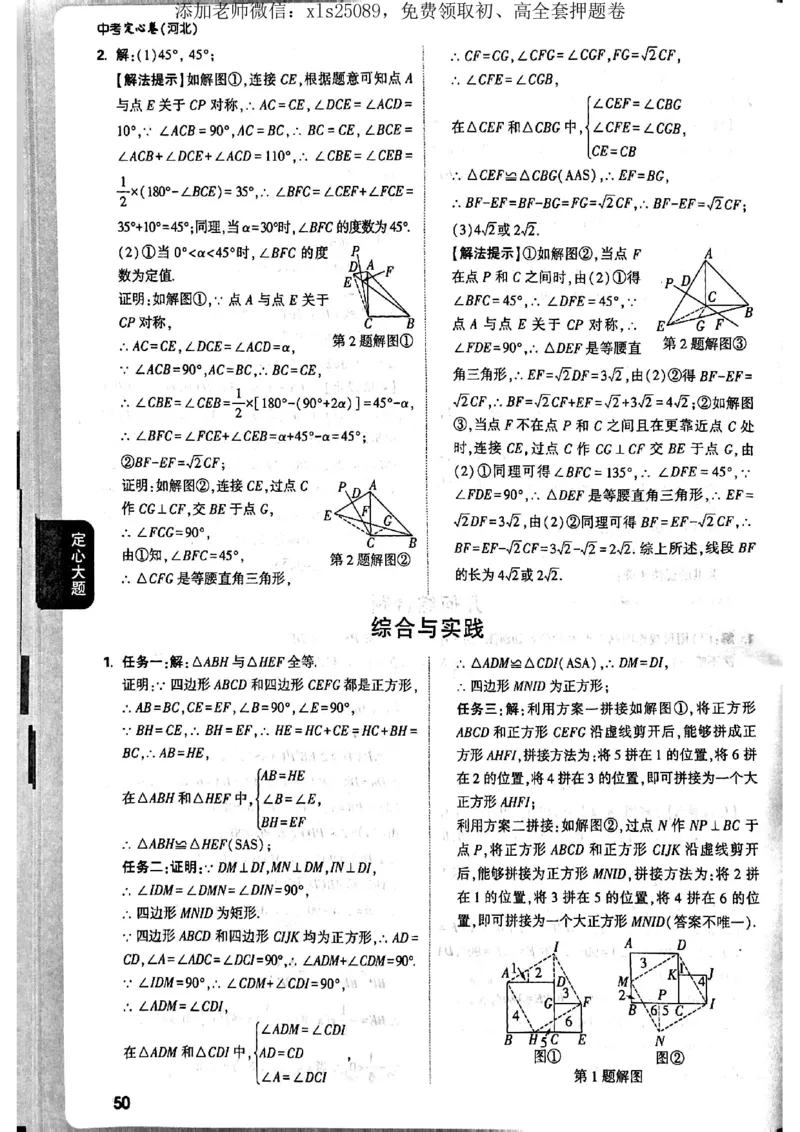 添加老师微信：xls25089，免费领取初、高全套押题卷
中考定心卷(河北)
2. 解:(1)45°, 45°;
【解法提示】如解图①,连接 CE,根据题意可知点 A
与点 E 关于 CP 对称,∴ AC=CE,∠DCE=∠ACD=
10°,∵ ∠ACB=90°,AC=BC,∴ BC=CE,∠BCE=
∠ACB+∠DCE+∠ACD=110°,∴ ∠CBE=∠CEB=
1/2×(180°-∠BCE)=35°,∴ ∠BFC=∠CEF+∠FCE=
35°+10°=45°;同理,当α=30°时,∠BFC的度数为45°.
(2)①当 0°<α<45°时,∠BFC 的度
数为定值.
证明:如解图①,∵ 点 A 与点 E 关于
CP 对称,
∴ AC=CE,∠DCE=∠ACD=α,
∵ ∠ACB=90°,AC=BC,∴ BC=CE,
∴ ∠CBE=∠CEB=1/2×[180°-(90°+2α)]=45°-α,
∴ ∠BFC=∠FCE+∠CEB=α+45°-α=45°;
②BF-EF=√2CF;
证明:如解图②,连接 CE,过点 C
作 CG⊥CF,交 BE 于点 G,
∴ ∠FCG=90°,
由①知,∠BFC=45°,
∴ △CFG 是等腰直角三角形,
P
D A
F
E
C B
第 2 题解图①
P A
D
E F
G
C B
第 2 题解图②
∴ CF=CG,∠CFG=∠CGF,FG=√2CF,
∴ ∠CFE=∠CGB,
在△CEF 和△CBG 中,{∠CEF=∠CBG
∠CFE=∠CGB,
CE=CB
∴ △CEF≌△CBG(AAS),∴ EF=BG,
∴ BF-EF=BF-BG=FG=√2CF,∴ BF-EF=√2CF;
(3)4√2或2√2.
【解法提示】①如解图②,当点 F
在点 P 和 C 之间时,由(2)①得
∠BFC=45°,∴ ∠DFE=45°,∵
点 A 与点 E 关于 CP 对称,∴
∠FDE=90°,∴ △DEF 是等腰直
角三角形,∴ EF=√2DF=3√2,由(2)②得 BF-EF=
√2CF,∴ BF=√2CF+EF=√2+3√2=4√2;②如解图
③,当点 F 不在点 P 和 C 之间且在更靠近点 C 处
时,连接 CE,过点 C 作 CG⊥CF 交 BE 于点 G,由
(2)①同理可得∠BFC=135°,∴ ∠DFE=45°,∵
∠FDE=90°,∴ △DEF 是等腰直角三角形,∴ EF=
√2DF=3√2,由(2)②同理可得 BF=EF-√2CF,∴
BF=EF-√2CF=3√2-√2=2√2. 综上所述,线段 BF
的长为 4√2或 2√2.
A
P D
C
B
E G F
第 2 题解图③
定心大题
综合与实践
1. 任务一:解:△ABH 与△HEF 全等.
证明:∵ 四边形 ABCD 和四边形 CEFG 都是正方形,
∴ AB=BC,CE=EF,∠B=90°,∠E=90°,
∵ BH=CE,∴ BH=EF,∴ HE=HC+CE=HC+BH=
BC,∴ AB=HE,
在△ABH 和△HEF 中,{AB=HE
∠B=∠E,
BH=EF
∴ △ABH≌△HEF(SAS);
任务二:证明:∵ DM⊥DI,MN⊥DM,IN⊥DI,
∴ ∠IDM=∠DMN=∠DIN=90°,
∴ 四边形 MNID 为矩形.
∵ 四边形 ABCD 和四边形 CIJK 均为正方形,∴ AD=
CD,∠A=∠ADC=∠DCI=90°,∴ ∠ADM+∠CDM=90°.
∵ ∠IDM=90°,∴ ∠CDM+∠CDI=90°,
∴ ∠ADM=∠CDI,
在△ADM 和△CDI 中,{∠ADM=∠CDI
AD=CD ,
∠A=∠DCI
∴ △ADM≌△CDI(ASA),∴ DM=DI,
∴ 四边形 MNID 为正方形;
任务三:解:利用方案一拼接如解图①,将正方形
ABCD 和正方形 CEFG 沿虚线剪开后,能够拼成正
方形 AHFI,拼接方法为:将 5 拼在 1 的位置,将 6 拼
在 2 的位置,将 4 拼在 3 的位置,即可拼接为一个大
正方形 AHFI;
利用方案二拼接:如解图②,过点 N 作 NP⊥BC 于
点 P,将正方形 ABCD 和正方形 CIJK 沿虚线剪开
后,能够拼接为正方形 MNID,拼接方法为:将 2 拼
在 1 的位置,将 3 拼在 5 的位置,将 4 拼在 6 的位
置,即可拼接为一个大正方形 MNID(答案不唯一).
I
A 1 2 D
G 3 F
4 6
B H 5 C E
图①
A D
3
M K 1 J
2 P 4
B 6 5 C I
N
图②
第 1 题解图
50